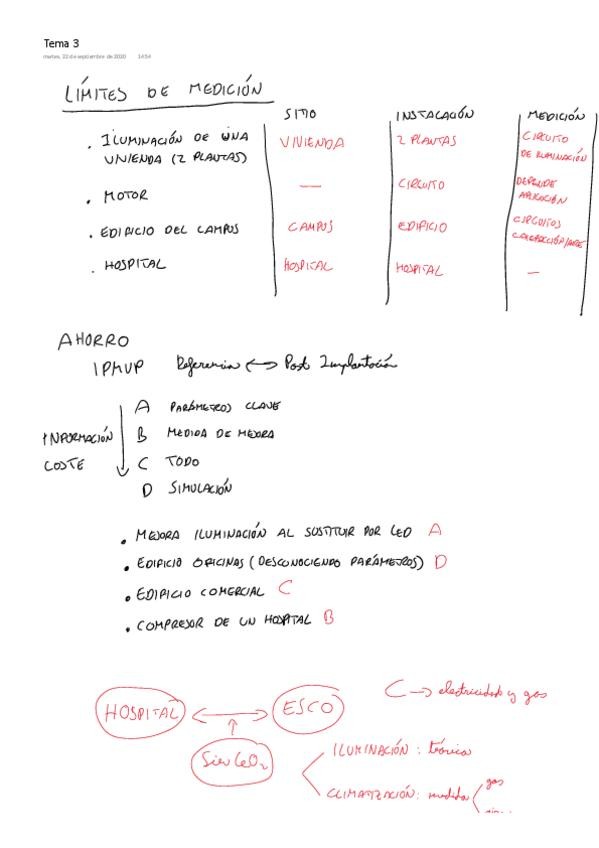 Tema 3
martes, 22 de septiembre de 2020 14:54
LÍMITES DE MEDICIÓN
SITIO INSTALACIÓN MEDICIÓN
. ILUMINACIÓN DE UNA VIVIENDA (2 PLANTAS) VIVIENDA 2 PLANTAS CIRCUITO DE ILUMINACIÓN
. MOTOR — CIRCUITO DEPENDE APLICACIÓN
. EDIFICIO DEL CAMPUS CAMPUS EDIFICIO CIRCUITOS
. HOSPITAL HOSPITAL HOSPITAL —
AHORRO
IPMVP Referencia <-> Post Implantación
A PARÁMETROS CLAVE
INFORMACIÓN B MEDIDA DE MEJORA
COSTE C TODO
D SIMULACIÓN
. MEJORA ILUMINACIÓN AL SUSTITUIR POR LED A
. EDIFICIO OFICINAS (DESCONOCIENDO PARÁMETROS) D
. EDIFICIO COMERCIAL C
. COMPRESOR DE UN HOSPITAL B
C -> electricidad y gas
HOSPITAL <-> ESCO
ILUMINACIÓN : teórica
CLIMATIZACIÓN: medida
gas